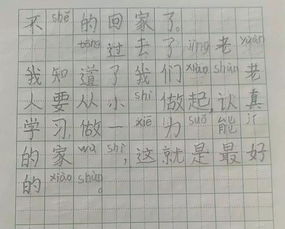 不shě的回家了。
tōng过去了jìng老yuàn
我知道了我们xiào shùn老
人要从小shì做起，认真
学习，做一xiē力suǒ能jí
的家wù shì，这就是最好
的xiào shùn。